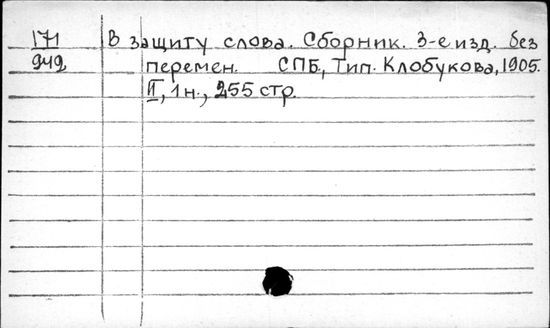 171 В защиту слова. Сборник. 3-е изд. без
949 перемен. СПБ, Тип. Клобукова, 1905.
II, 1 н., 255 стр.